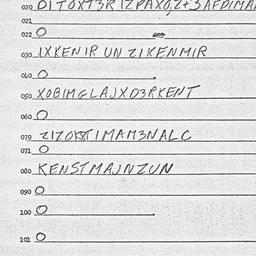 020 DITOXT3RIZPAXO,Z+3AFDIMA
021
022 O
030 IXKENIR UN ZIKENMIR
040 O
050 XOBIMGLAJXD3RKENT
060 O
070 ZIZOKTIMAM3NALC
071 O
080 KENSTMAJNZUN
090 O
100 O
101 O